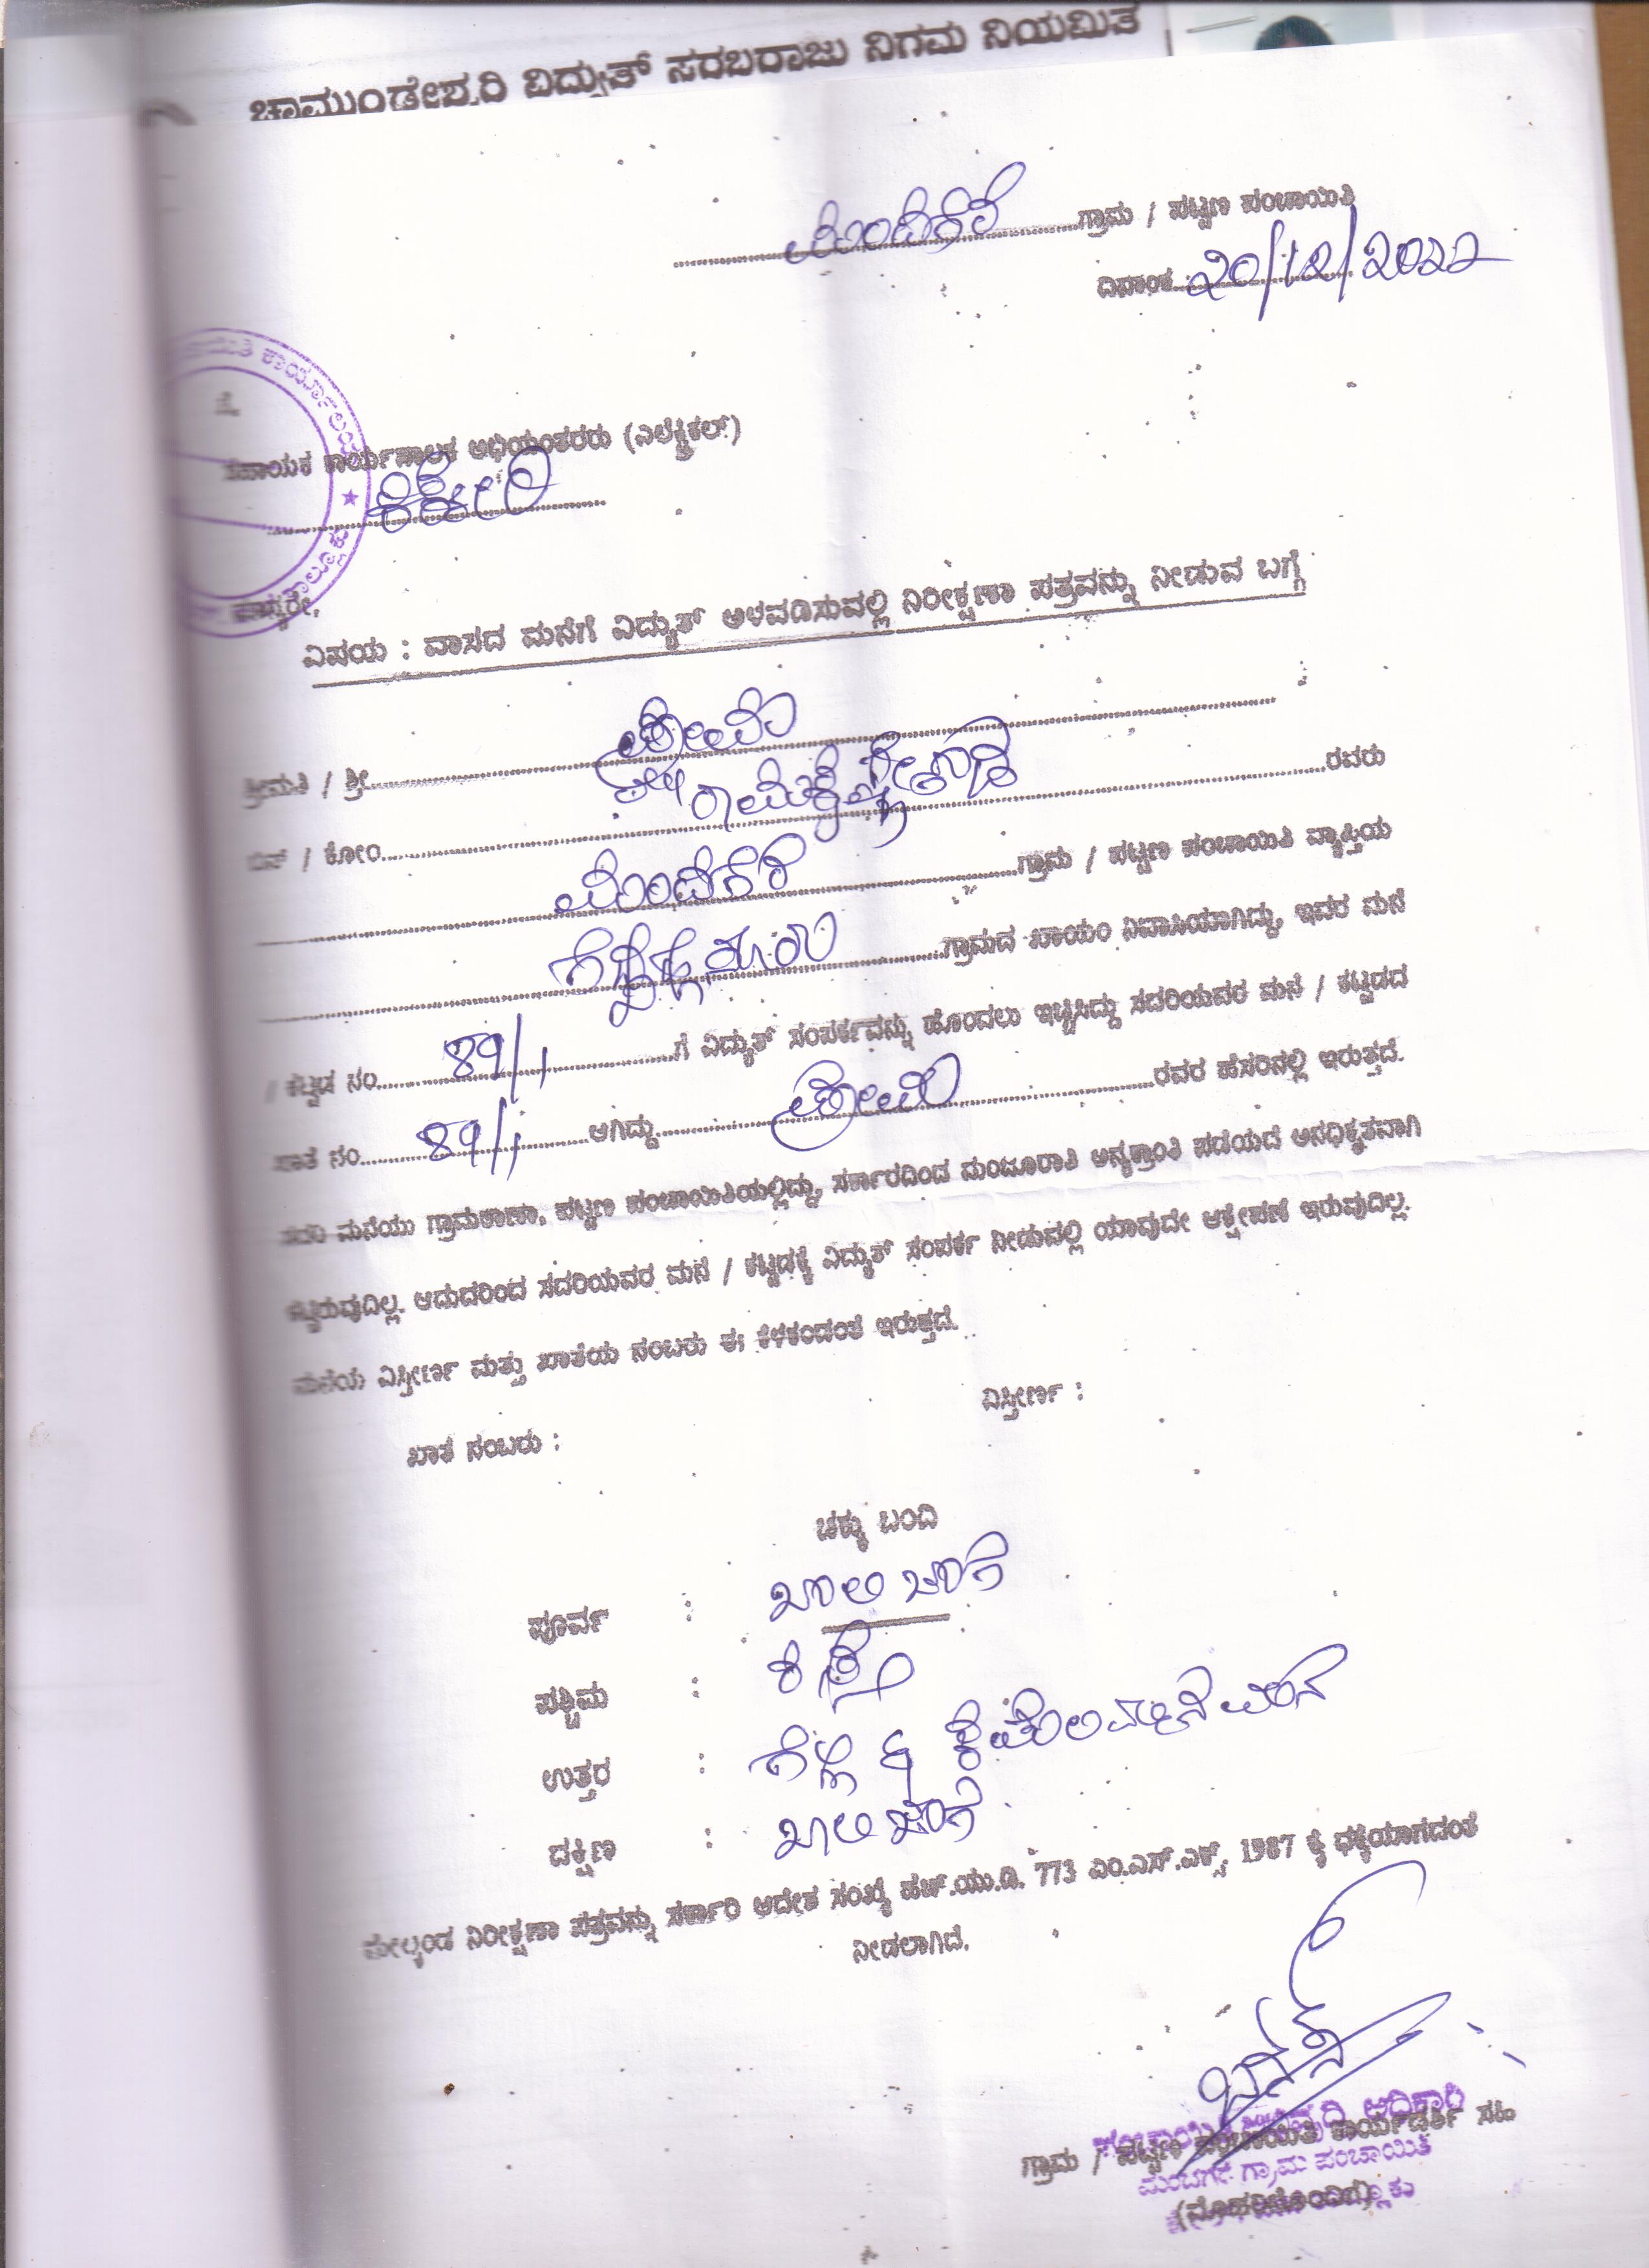 ಚಾಮುಂಡೇಶ್ವರಿ ವಿದ್ಯುತ್ ಸರಬರಾಜು ನಿಗಮ ನಿಯಮಿತ
ಗ್ರಾಮ / ಪಟ್ಟಣ ಪಂಚಾಯಿತಿ
ದಿನಾಂಕ 20/12/2022
ಕಾರ್ಯಾಲಯ
ಗೆ,
ಸಹಾಯಕ ಕಾರ್ಯಪಾಲಕ ಅಭಿಯಂತರರು (ಎಲೆಕ್ಟ್ರಿಕಲ್)
ಕಿಕ್ಕೇರಿ
ಮಾನ್ಯರೇ,
ವಿಷಯ : ವಾಸದ ಮನೆಗೆ ವಿದ್ಯುತ್ ಅಳವಡಿಸುವಲ್ಲಿ ನಿರೀಕ್ಷಣಾ ಪತ್ರವನ್ನು ನೀಡುವ ಬಗ್ಗೆ
ಶ್ರೀಮತಿ / ಶ್ರೀ
ಬಿನ್ / ಕೋಂ ರವರು
ಗ್ರಾಮ / ಪಟ್ಟಣ ಪಂಚಾಯಿತಿ ವ್ಯಾಪ್ತಿಯ
ಗ್ರಾಮದ ಖಾಯಂ ನಿವಾಸಿಯಾಗಿದ್ದು, ಇವರ ಮನೆ
/ ಕಟ್ಟಡ ನಂ 89/1 ಗೆ ವಿದ್ಯುತ್ ಸಂಪರ್ಕವನ್ನು ಹೊಂದಲು ಇಚ್ಛಿಸಿದ್ದು ಸದರಿಯವರ ಮನೆ / ಕಟ್ಟಡದ
ಖಾತೆ ನಂ 89/1 ಆಗಿದ್ದು ರವರ ಹೆಸರಿನಲ್ಲಿ ಇರುತ್ತದೆ.
ಸದರಿ ಮನೆಯು ಗ್ರಾಮಠಾಣಾ, ಪಟ್ಟಣ ಪಂಚಾಯಿತಿಯಲ್ಲಿದ್ದು, ಸರ್ಕಾರದಿಂದ ಮಂಜೂರಾತಿ ಅನ್ಯಕ್ರಾಂತಿ ಪಡೆಯದೆ ಅನಧಿಕೃತವಾಗಿ
ಕಟ್ಟಿರುವುದಿಲ್ಲ. ಆದುದರಿಂದ ಸದರಿಯವರ ಮನೆ / ಕಟ್ಟಡಕ್ಕೆ ವಿದ್ಯುತ್ ಸಂಪರ್ಕ ನೀಡುವಲ್ಲಿ ಯಾವುದೇ ಆಕ್ಷೇಪಣೆ ಇರುವುದಿಲ್ಲ.
ಮನೆಯ ವಿಸ್ತೀರ್ಣ ಮತ್ತು ಖಾತೆಯ ನಂಬರು ಈ ಕೆಳಕಂಡಂತೆ ಇರುತ್ತದೆ.
ಖಾತೆ ನಂಬರು : ವಿಸ್ತೀರ್ಣ :
ಚಕ್ಕು ಬಂದಿ
ಪೂರ್ವ : ಖಾಲಿ ಜಾಗ
ಪಶ್ಚಿಮ : ರಸ್ತೆ
ಉತ್ತರ :
ದಕ್ಷಿಣ : ಖಾಲಿ ಜಾಗ
ಮೇಲ್ಕಂಡ ನಿರೀಕ್ಷಣಾ ಪತ್ರವನ್ನು ಸರ್ಕಾರಿ ಆದೇಶ ಸಂಖ್ಯೆ ಹೆಚ್.ಯು.ಡಿ. 773 ಎಂ.ಎಸ್.ಎಕ್ಸ್. 1987 ಕ್ಕೆ ಧಕ್ಕೆಯಾಗದಂತೆ
ನೀಡಲಾಗಿದೆ.
ಪಂಚಾಯಿತಿ ಅಭಿವೃದ್ಧಿ ಅಧಿಕಾರಿ
ಗ್ರಾಮ / ಪಟ್ಟಣ ಪಂಚಾಯಿತಿ ಕಾರ್ಯದರ್ಶಿ ಸಹಿ
ಗ್ರಾಮ ಪಂಚಾಯಿತಿ
(ಮೊಹರಿನೊಂದಿಗೆ)